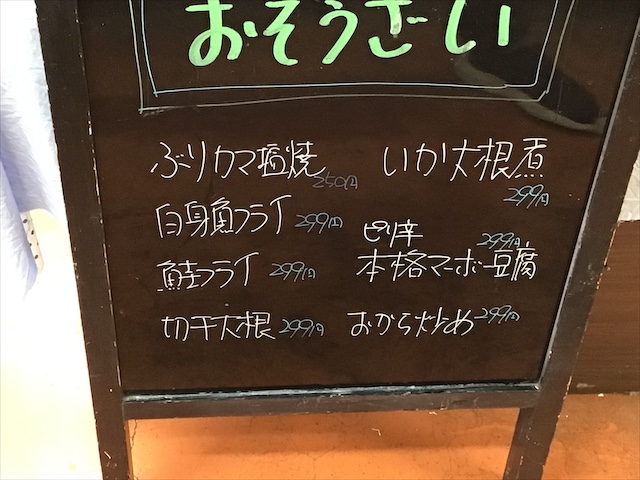 おそうざい
ぶりカマ塩焼 250円
白身魚フライ 299円
鮭フライ 299円
切干大根 299円
いか大根煮
299円
ピリ辛 299円
本格マーボー豆腐
おから炒め 299円